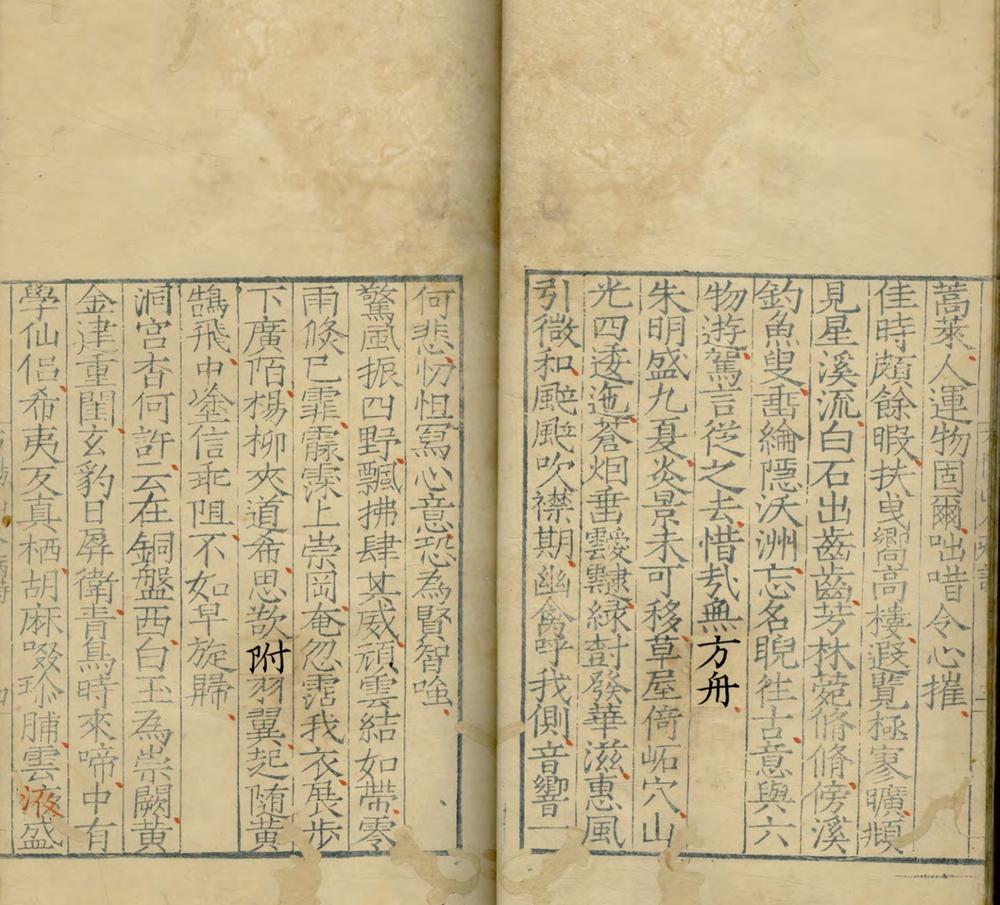 蒿萊人運物固爾咄唶令心摧
佳時頗餘暇扶曳嚮高樓遐覽極寥曠頫
見星溪流白石出齒齒芳林菀脩脩傍溪
釣魚叟垂綸隱沃洲忘名睨往古意與六
物遊駕言從之去惜哉無方舟
朱明盛九夏炎景未可移草屋倚岳穴山
光四逶迤蒼烟垂靉靆綠樹發華滋惠風
引微和飃飃吹襟期幽禽呼我側音響一
何悲忉怛寫心意恐為賢智嗤
驚風振四野飄拂肆其威頑雲結如帶零
雨倏已霏霢霂上崇岡奄忽霑我衣展步
下廣陌楊柳夾道希思欲附羽翼起隨黃
鵠飛中塗信乖阻不如早旋歸
洞宮杳何許云在銅盤西白玉為崇闕黃
金津重閨玄豹日屏衛青鳥時來啼中有
學仙侶希夷反真栖胡麻啜珍脯雲液盛